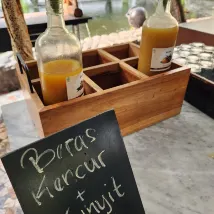 Beras
Kencur
+
Kunyit